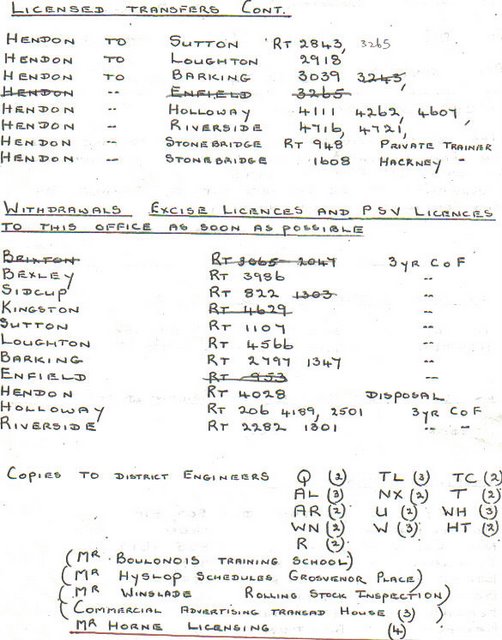 LICENSED TRANSFERS CONT.
HENDON TO SUTTON RT 2843, 3265
HENDON TO LOUGHTON 2918
HENDON TO BARKING 3039 3245,
HENDON -- ENFIELD 3265
HENDON -- HOLLOWAY 4111 4262, 4607,
HENDON -- RIVERSIDE 4716, 4721,
HENDON -- STONEBRIDGE RT 948 PRIVATE TRAINER
HENDON -- STONEBRIDGE 1608 HACKNEY "
WITHDRAWALS EXCISE LICENCES AND PSV LICENCES
TO THIS OFFICE AS SOON AS POSSIBLE
BRIXTON RT 3065 2047 3YR C OF F
BEXLEY RT 3986 --
SIDCUP RT 822 1303 --
KINGSTON RT 4629 --
SUTTON RT 1107 --
LOUGHTON RT 4566 --
BARKING RT 2797 1347 --
ENFIELD RT 953 --
HENDON RT 4028 DISPOSAL
HOLLOWAY RT 206 4189, 2501 3YR C OF F
RIVERSIDE RT 2282 1301 -- --
COPIES TO DISTRICT ENGINEERS Q (2) TL (3) TC (2)
AL (3) NX (2) T (2)
AR (2) U (2) WH (3)
WN (2) W (3) HT (2)
R (2)
(MR BOULONOIS TRAINING SCHOOL)
(MR HYSLOP SCHEDULES GROSVENOR PLACE)
(MR WINSLADE ROLLING STOCK INSPECTION)
(COMMERCIAL ADVERTISING TRANSAD HOUSE (3))
MR HORNE LICENSING (4)